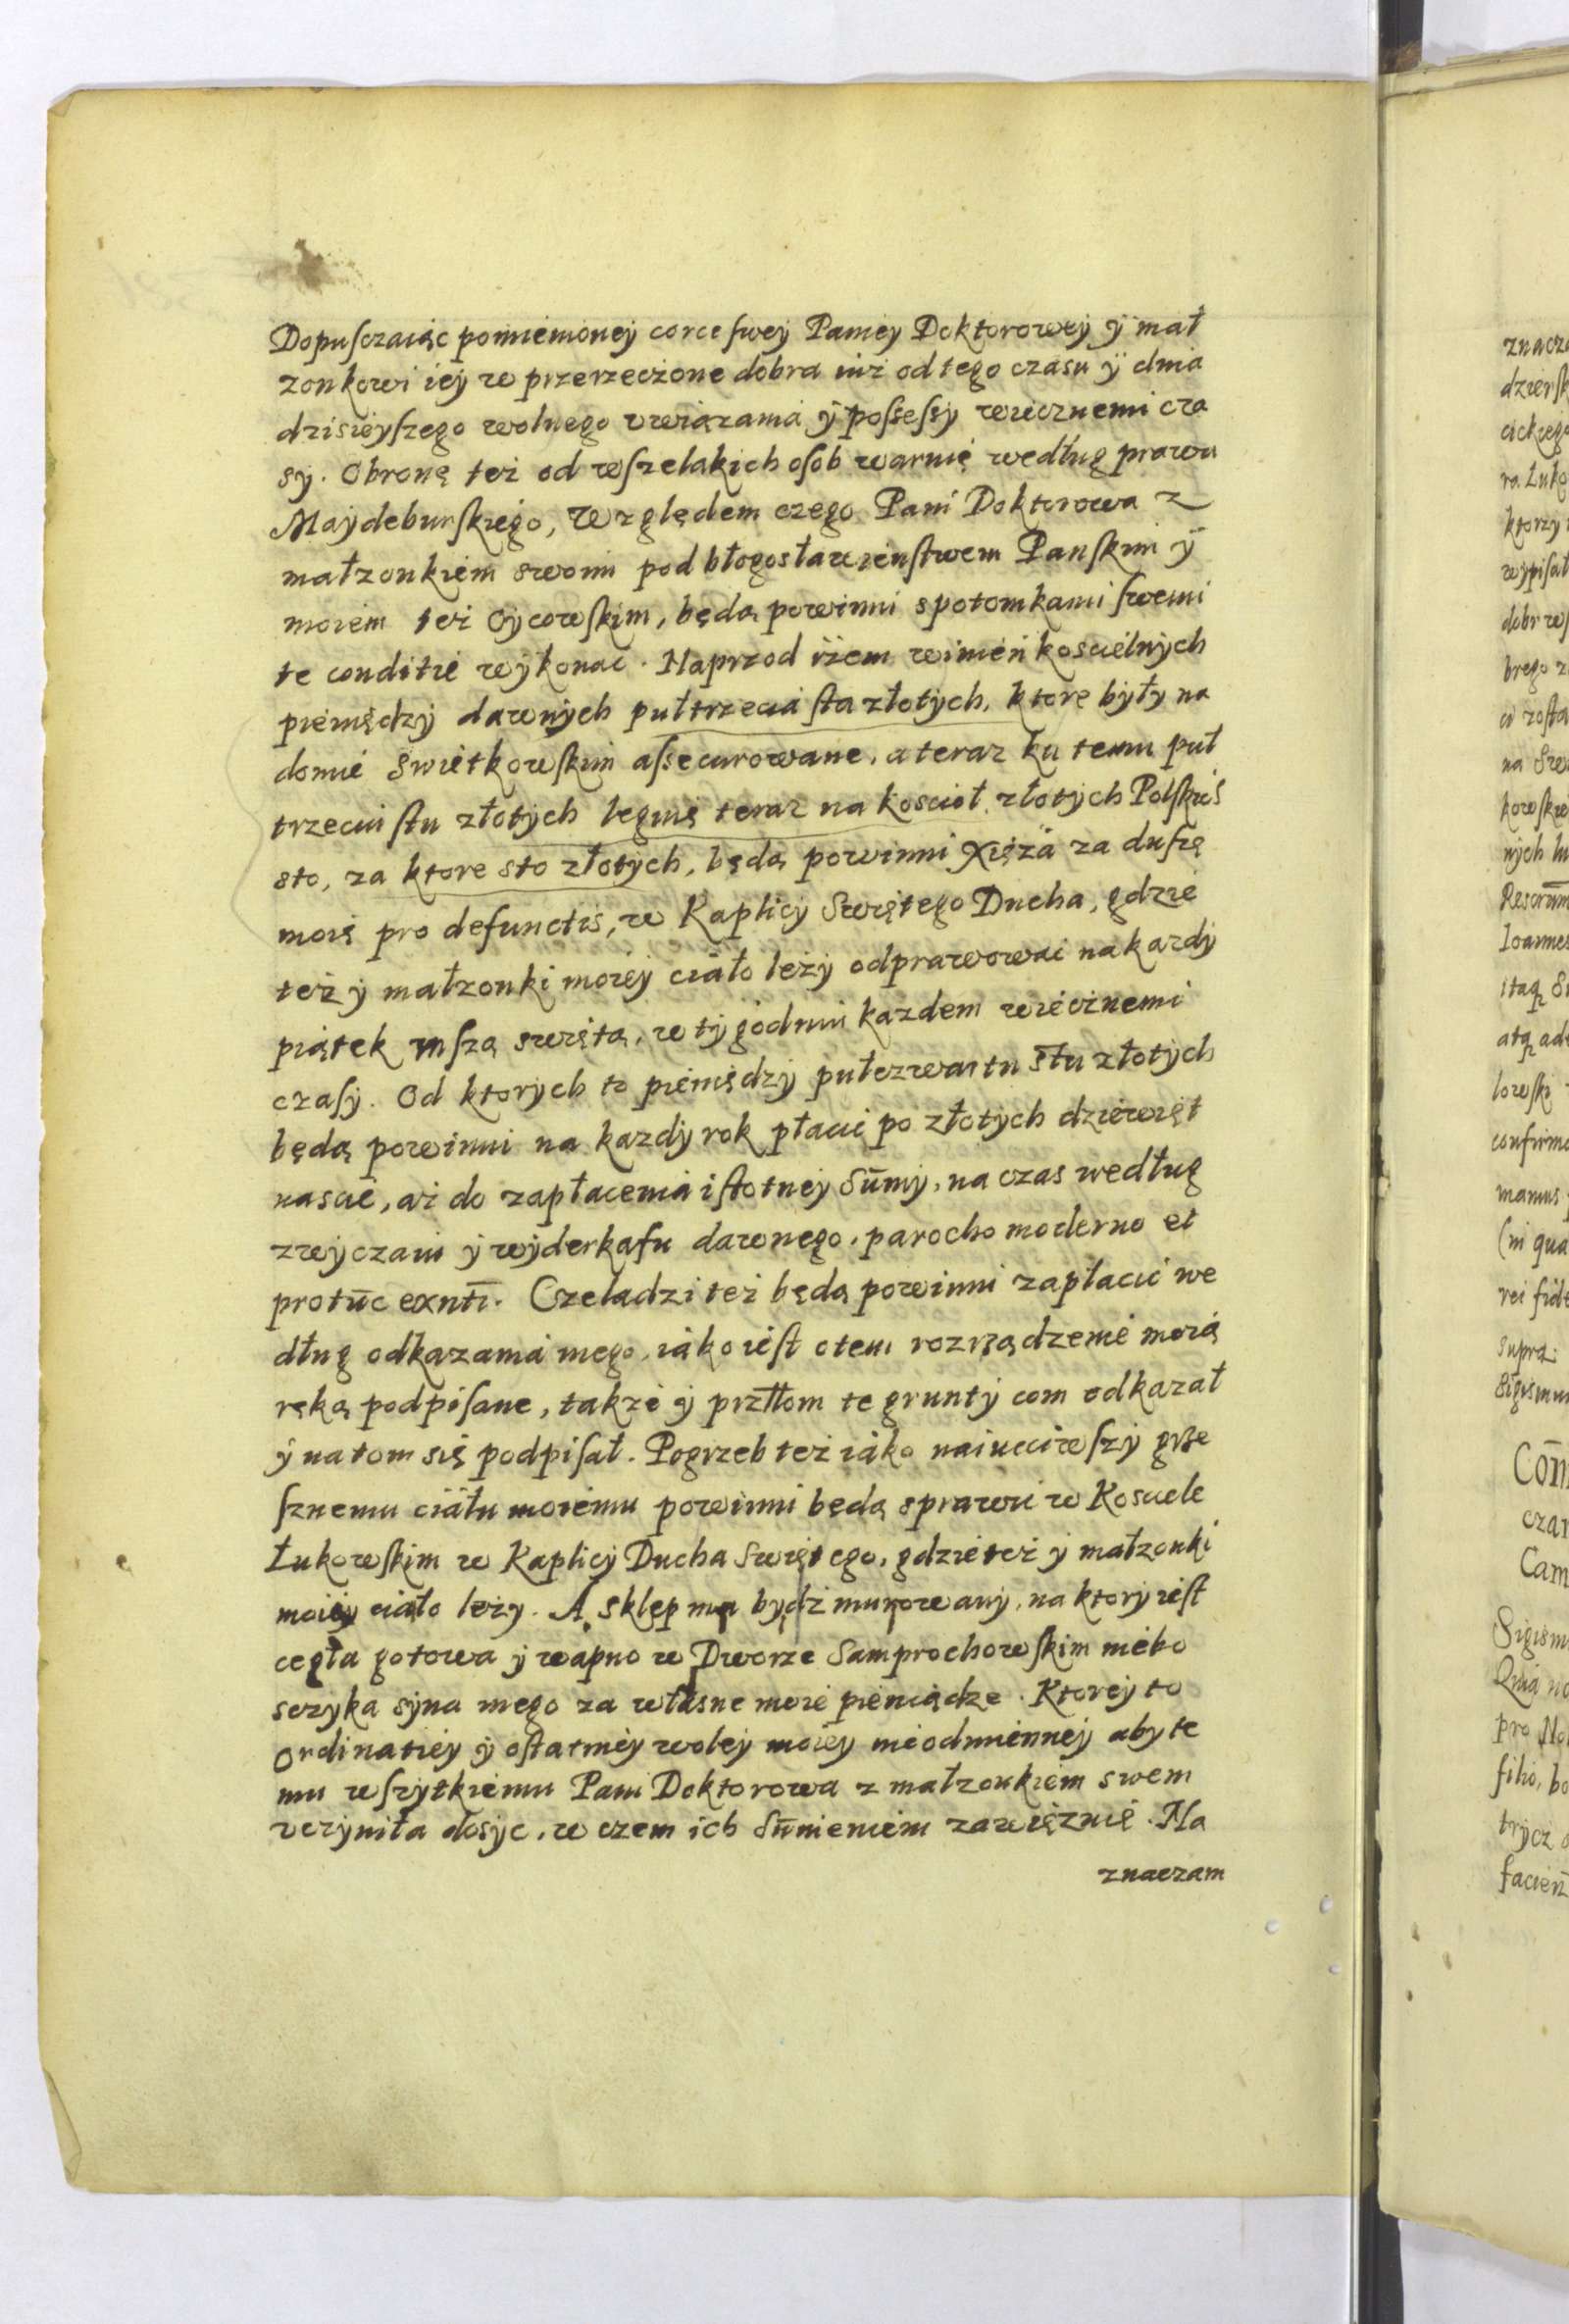 Dopusczaiąc pomienioney corce swey Paniey Doktorowey ÿ mał
zonkowi iey w przerzeczone dobra iuż od tego czasu ÿ dnia
dzisieyszego wolnego vwiązania ÿ possessÿ wiecznemi cza
sÿ. Obronę też od wszelakich osob waruię według prawa
Maÿdeburskiego, Względem czego Pani Doktorowa z
małzonkiem swoim pod błogosławienstwem Panskim ÿ
moiem też Oÿcowskim, będą powinni spotomkami swemi
te conditie wÿkonac. Naprzod iżem winien koscielnÿch
pieniędzÿ dawnÿch pułtrzecia sta złotÿch, ktore bÿłÿ na
domie Swietkowskim assecurowane, a teraz ku temu puł
trzeciu stu złotÿch leguię teraz na koscioł złotÿch Polskich
sto, za ktore sto złotÿch, będą powinni Xięża za duszę
moię pro defunctis, w Kaplicÿ Swiętego Ducha, gdzie
też ÿ małzonki moieÿ ciało leżÿ odprawowac na kazdÿ
piątek mszą swiętą, w tÿgodniu kazdem wiecznemi
czasÿ. Od ktorÿch to pieniędzÿ pułczwartu stu złotÿch
będą powinni na kazdÿ rok płacic po złotÿch dziewięt
nascie, aż do zapłacenia istotneÿ Sūmÿ, na czas według
zwÿczaiu ÿ wÿderkafu dawnego, parocho moderno et
protūc exnti. Czeladzi też będą powinni zapłacic we
dług odkazania mego, iako iest o tem rozrządzenie moią
ręką podpisane, także ÿ prztłom te gruntÿ com odkazał
ÿ na tom się podpisał. Pogrzeb też iako naiucciwszÿ grze
sznemu ciału moiemu powinni będą sprawic w Kosciele
Łukowskim w Kaplicÿ Ducha Swiętego, gdzie też ÿ małzonki
moieÿ ciało leżÿ. A sklep ma bÿdż murowanÿ, na ktorÿ iest
cegła gotowa ÿ wapno w Dworze Samprochowskim niebo
sczÿka sÿna mego za własne moie pieniądze. Ktoreÿ to
Ordinatieÿ ÿ ostatnieÿ woleÿ moieÿ nieodmienneÿ abÿ te
mu wszÿtkiemu Pani Doktorowa z małzonkiem swem
vczÿniła dosÿc, w czem ich Sūnieniem zawięzuię. Na
znaczam